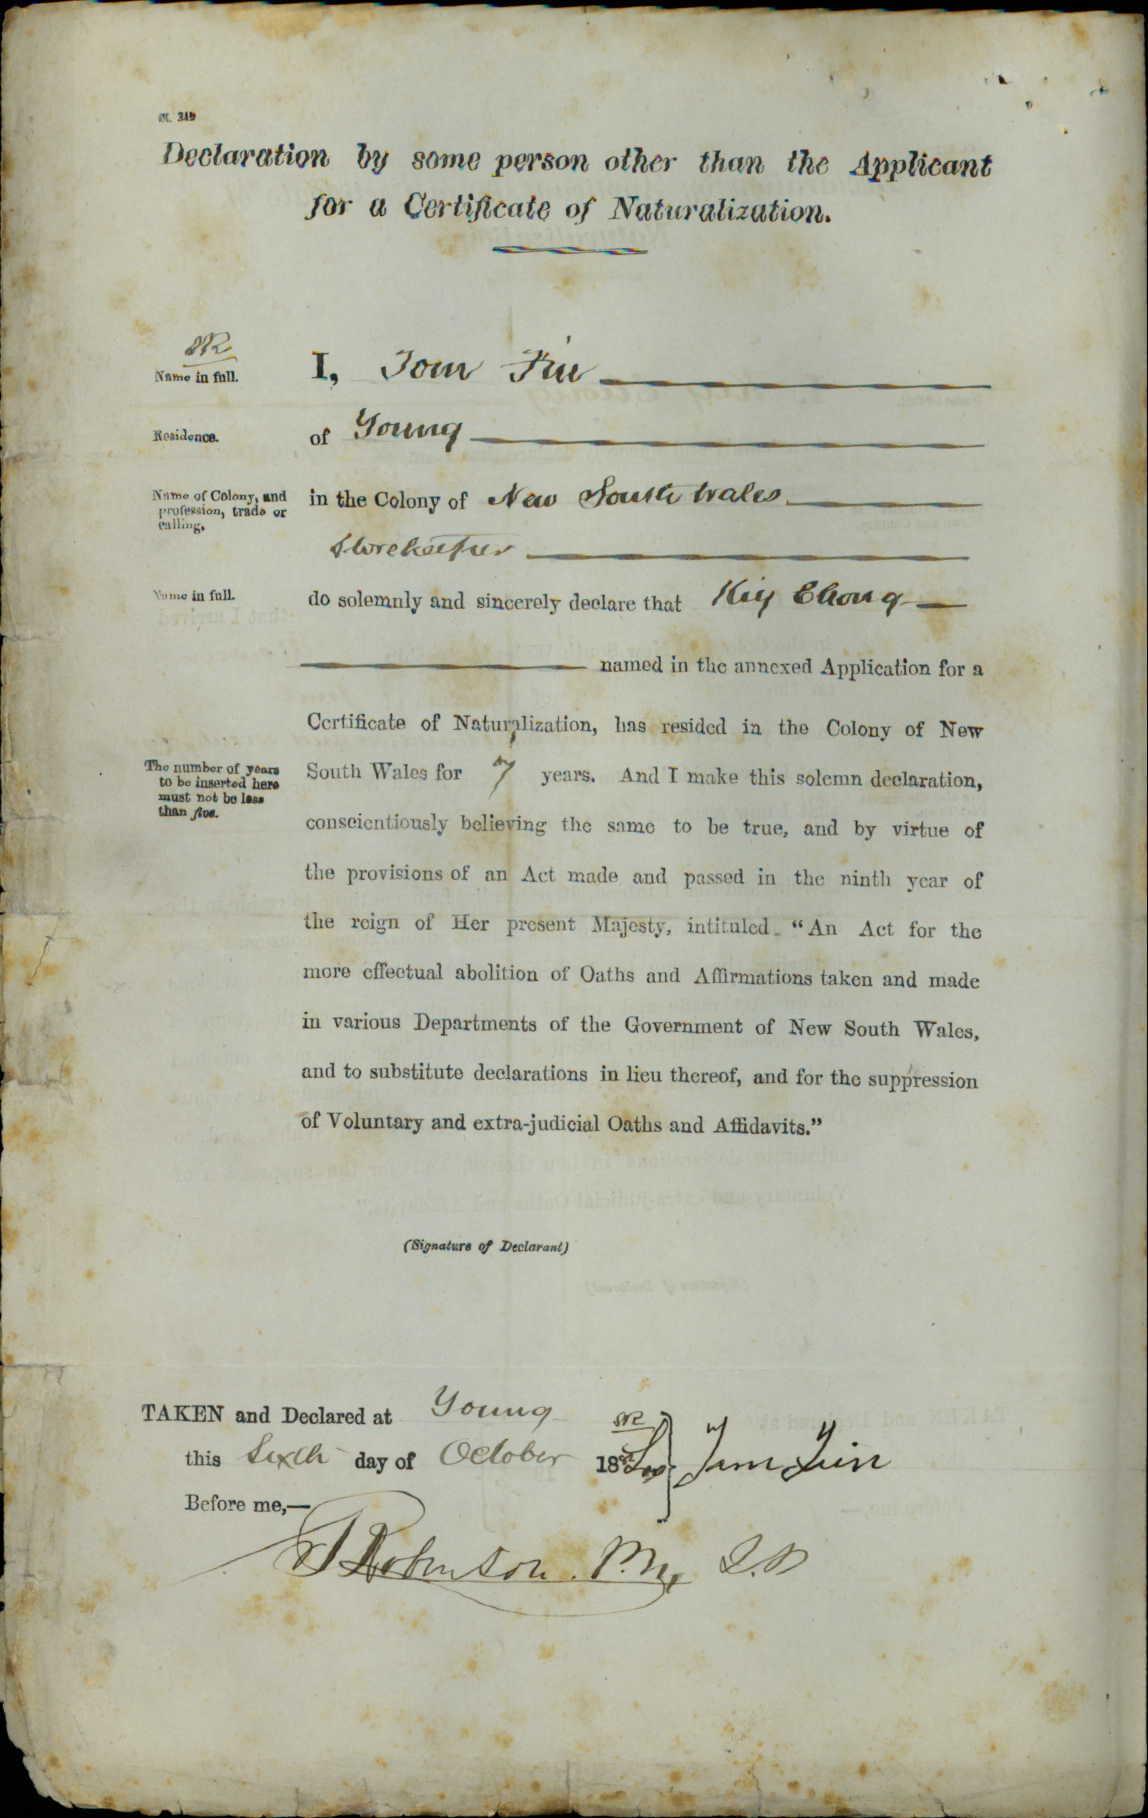 M. 349
Declaration by some person other than the Applicant
for a Certificate of Naturalization.
Name in full.
I, Tom Fin
Residence.
of Young
Name of Colony, and
profession, trade or
calling.
in the Colony of New South Wales
Storekeeper
Name in full.
do solemnly and sincerely declare that Chong
named in the annexed Application for a
Certificate of Naturalization, has resided in the Colony of New
The number of years
to be inserted here
must not be less
than five.
South Wales for 7 years. And I make this solemn declaration,
conscientiously believing the same to be true, and by virtue of
the provisions of an Act made and passed in the ninth year of
the reign of Her present Majesty, intituled "An Act for the
more effectual abolition of Oaths and Affirmations taken and made
in various Departments of the Government of New South Wales,
and to substitute declarations in lieu thereof, and for the suppression
of Voluntary and extra-judicial Oaths and Affidavits."
(Signature of Declarant)
TAKEN and Declared at Young
this Sixth day of October 18
Before me,—
Robinson P.M, J.P